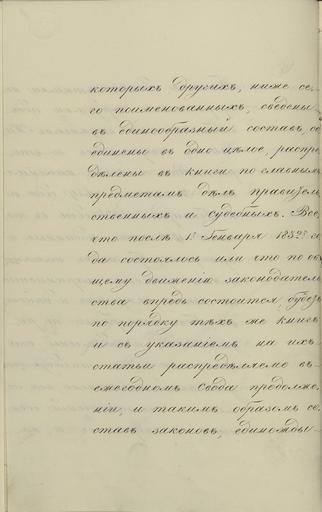 которыхъ другихъ, ниже се-
го поименованныхъ, сведены
въ единообразный составъ, об
единены въ одно цѣлое, распре
дѣлены въ книги по главнымъ
предметамъ дѣлъ правитель
ственныхъ и судебныхъ. Все,
что послѣ 1го Генваря 1832го го
да состоялось или что по об
щему движенію законодатель
ства впредь состоится, будетъ
по порядку тѣхъ же книгъ
и съ указаніемъ на ихъ
статьи распредѣляемо въ
ежегодномъ Свода продолже-
ніи, и такимъ образомъ со
ставъ законовъ, единожды-